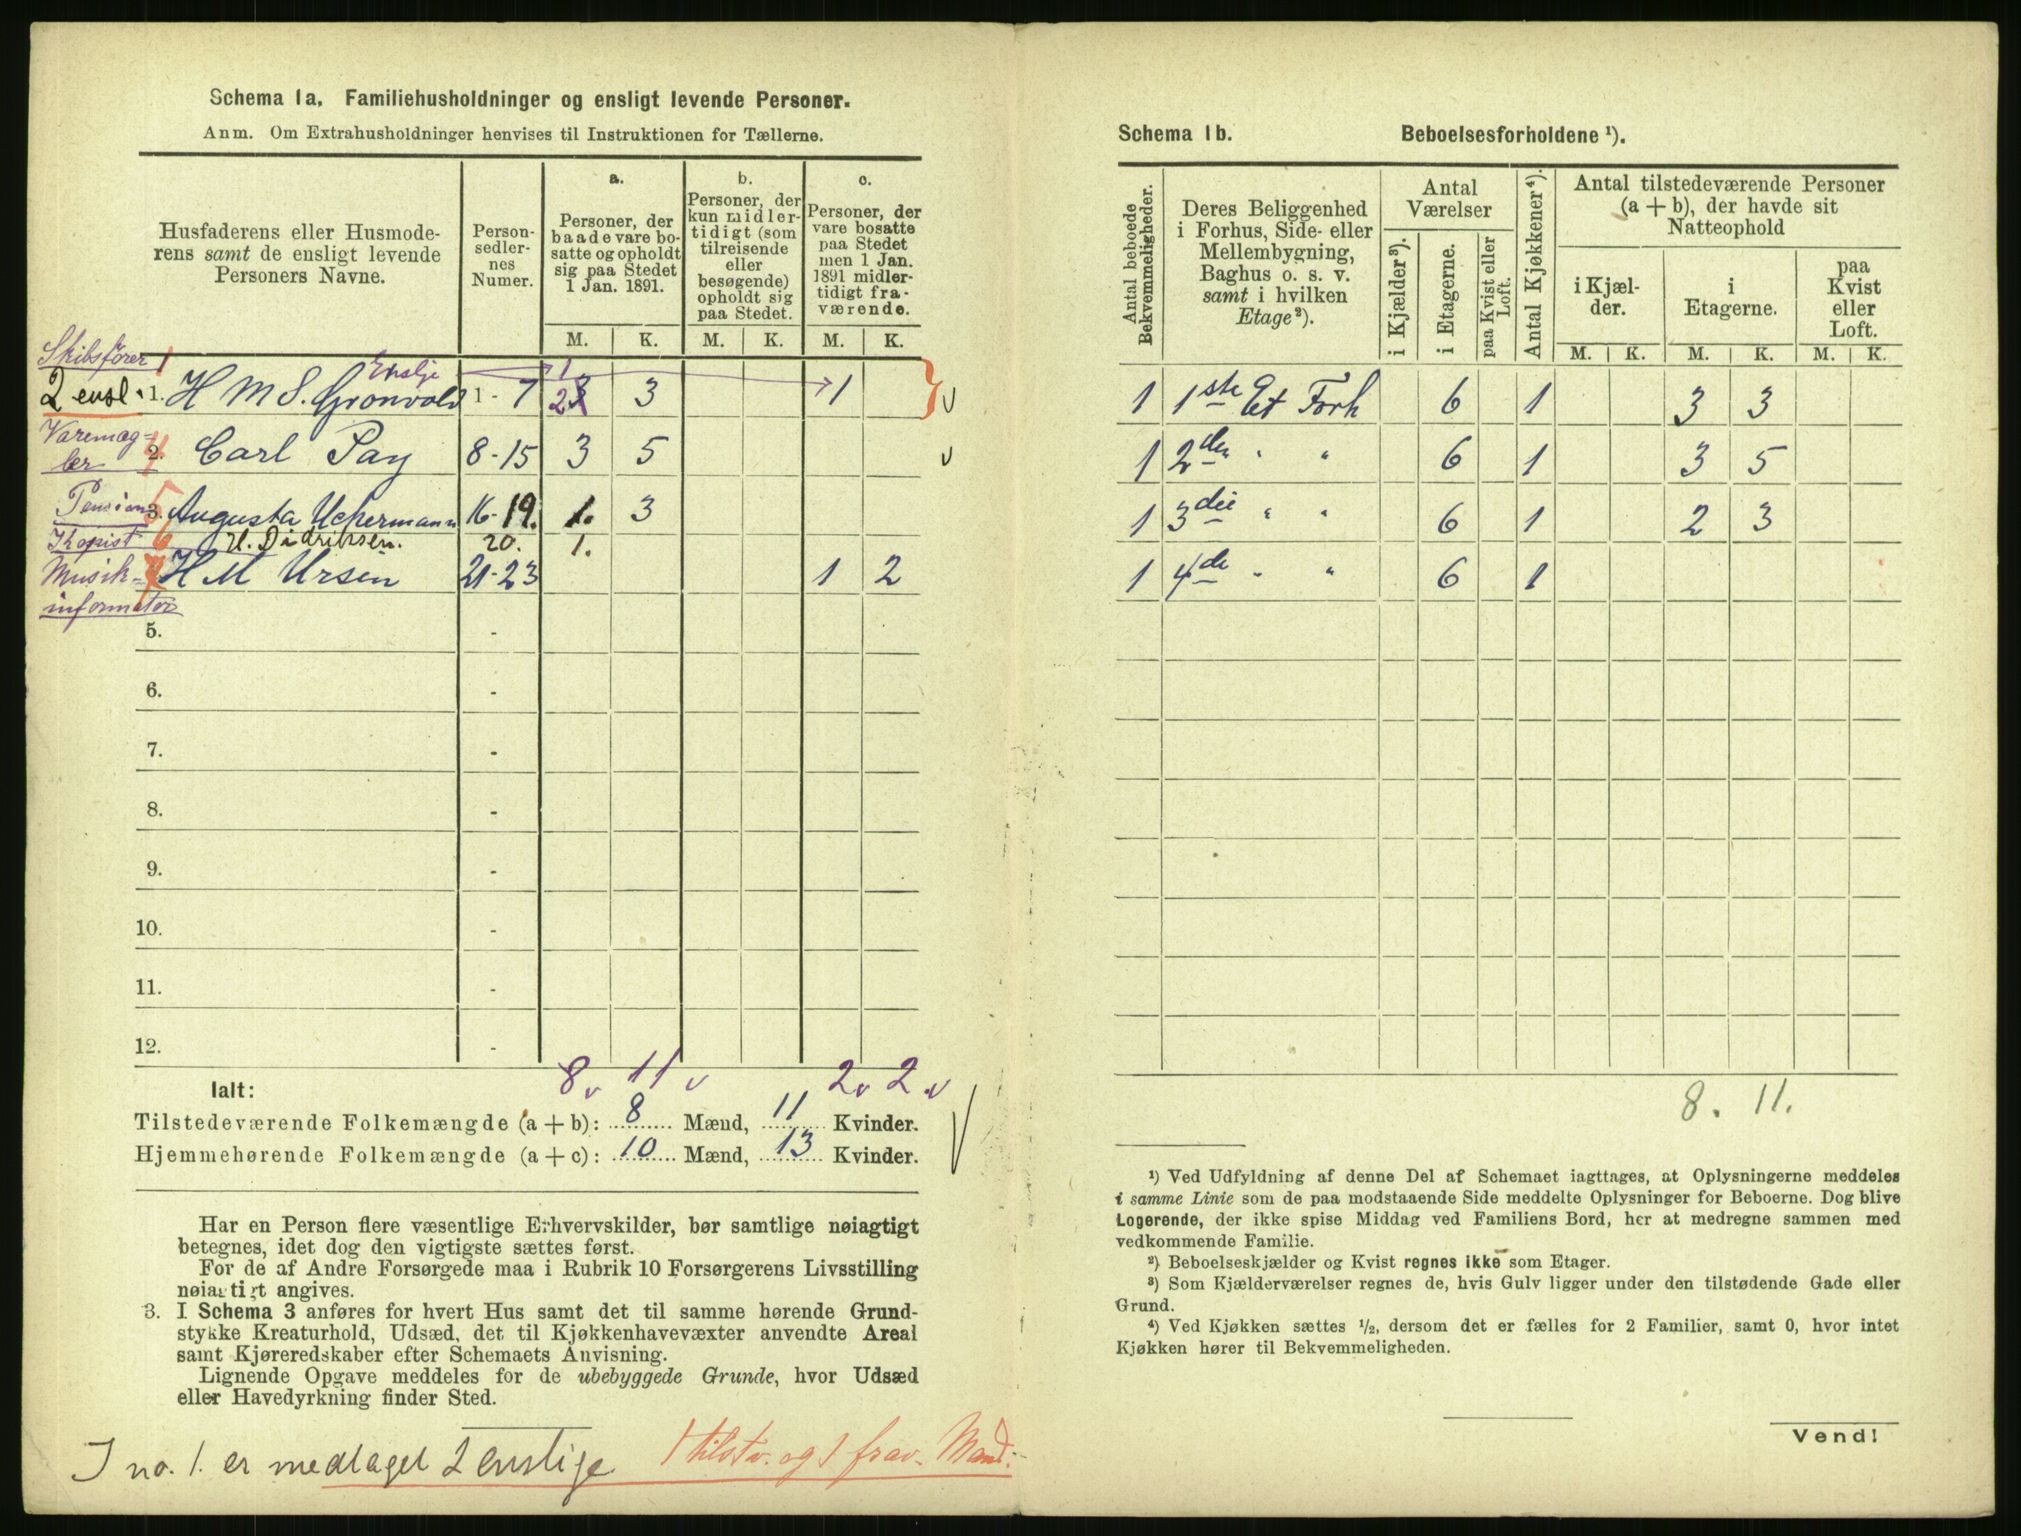 Schema 1a. Familiehusholdninger og ensligt levende Personer.
Anm. Om Extrahusholdninger henvises til Instruktionen for Tællerne.
Husfaderens eller Husmode-
rens samt de ensligt levende
Personers Navne.
Person-
sedler-
nes
Numer.
a.
Personer, der
baade vare bo-
satte og opholdt
sig paa Stedet
1 Jan. 1891.
b.
Personer, der
kun midler-
tidigt (som
tilreisende
eller
besøgende)
opholdt sig
paa Stedet.
c.
Personer, der
vare bosatte
paa Stedet
men 1 Jan.
1891 midler-
tidigt fra-
værende.
M. K. M. K. M. K.
Skibsfører 1 Enslje 1
2 ensl. 1. H M S. Gronvold 1 - 7 2 3 3 1
Varemæg-
ler 4 2. Carl Pay 8-15 3 5
Pension 5 3. Augusta Uckermann 16-19. 1. 3
Kopist 6 H. Didriksen. 20. 1.
Musik- 7 H M Ursin 21-23 1 2
informator
5. -
6. -
7. -
8. -
9. -
10. -
11. -
12. -
8 v 11 v 2 v 2 v
Ialt:
Tilstedeværende Folkemængde (a + b): 8 Mænd, 11 Kvinder.
Hjemmehørende Folkemængde (a + c): 10 Mænd, 13 Kvinder.
Har en Person flere væsentlige Erhvervskilder, bør samtlige nøiagtigt
betegnes, idet dog den vigtigste sættes først.
For de af Andre Forsørgede maa i Rubrik 10 Forsørgerens Livsstilling
nøiagtigt angives.
3. I Schema 3 anføres for hvert Hus samt det til samme hørende Grund-
stykke Kreaturhold, Udsæd, det til Kjøkkenhavevæxter anvendte Areal
samt Kjøreredskaber efter Schemaets Anvisning.
Lignende Opgave meddeles for de ubebyggede Grunde, hvor Udsæd
eller Havedyrkning finder Sted.
I no. 1. er medtaget 2 enslige 1 tilstv. og 1 frav. Mand.
Schema 1b. Beboelsesforholdene ¹).
Antal beboede
Bekvemmeligheder.
Deres Beliggenhed
i Forhus, Side- eller
Mellembygning,
Baghus o. s. v.
samt i hvilken
Etage²).
Antal
Værelser
i Kjælder³).
i Etagerne.
paa Kvist eller
Loft.
Antal Kjøkkener⁴).
Antal tilstedeværende Personer
(a + b), der havde sit
Natteophold
i Kjæl-
der.
i
Etagerne.
paa
Kvist
eller
Loft.
M. K. M. K. M. K.
1 1ste Et Forh 6 1 3 3
1 2den " " 6 1 3 5
1 3die " " 6 1 2 3
1 4de " " 6 1
8. 11.
¹) Ved Udfyldning af denne Del af Schemaet iagttages, at Oplysningerne meddeles
i samme Linie som de paa modstaaende Side meddelte Oplysninger for Beboerne. Dog blive
Logerende, der ikke spise Middag ved Familiens Bord, her at medregne sammen med
vedkommende Familie.
²) Beboelseskjælder og Kvist regnes ikke som Etager.
³) Som Kjælderværelser regnes de, hvis Gulv ligger under den tilstødende Gade eller
Grund.
⁴) Ved Kjøkken sættes ½, dersom det er fælles for 2 Familier, samt 0, hvor intet
Kjøkken hører til Bekvemmeligheden.
Vend!